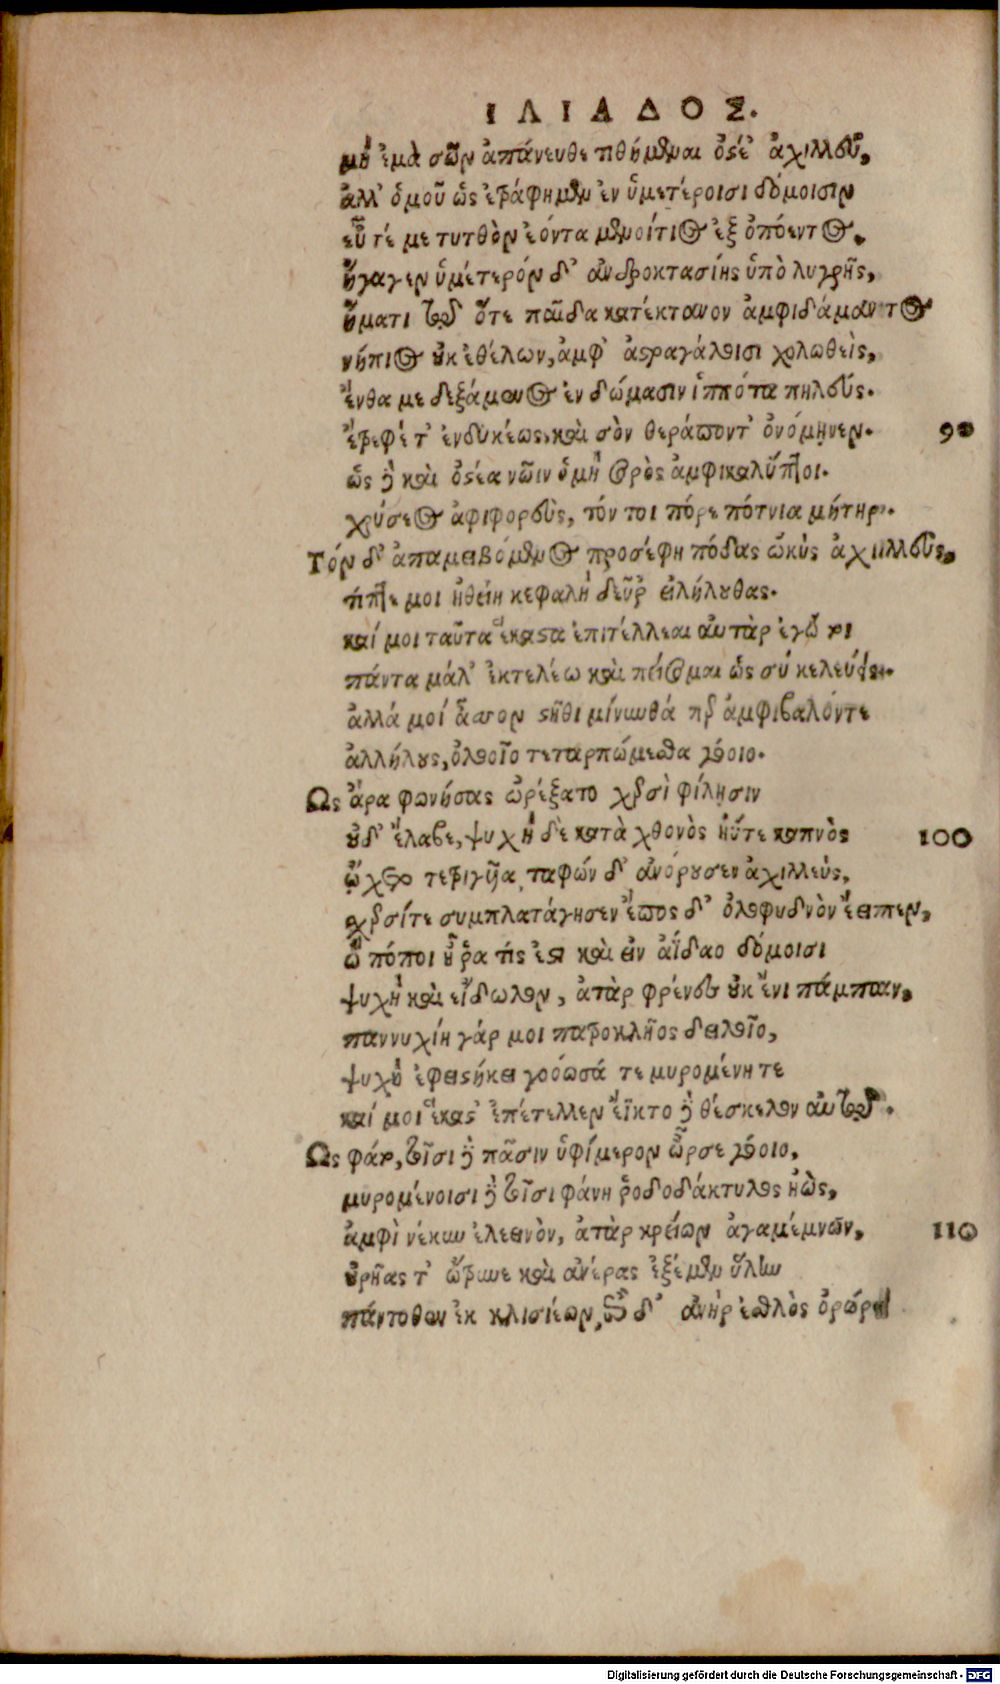 ΙΛΙΑΔΟΣ.
μὴ ἐμὰ σῶν ἀπάνευθε τιθήμεναι ὀστέ' ἀχιλλεῦ,
ἀλλ' ὁμοῦ ὡς ἐτράφημεν ἐν ὑμετέροισι δόμοισιν
εὖτέ με τυτθὸν ἐόντα μενοίτιος ἐξ ὀπόεντος.
ἤγαγεν ὑμέτερόν δ' ἀνδροκτασίης ὑπὸ λυγρῆς,
ἤματι τῷ ὅτε παῖδα κατέκτανον ἀμφιδάμαντος
νήπιος οὐκ ἐθέλων, ἀμφ' ἀστραγάλοισι χολωθεὶς,
ἔνθα με δεξάμενος ἐν δώμασιν ἱππότα πηλεύς.
ἔτρεφέ τ' ἐνδυκέως, καὶ σὸν θεράποντ' ὀνόμηνεν.
90
ὣς δὲ καὶ ὀστέα νῶιν ὁμὴ σορὸς ἀμφικαλύπτοι.
χρύσεος ἀμφιφορεὺς, τόν τοι πόρε πότνια μήτηρ.
Τὸν δ' ἀπαμειβόμενος προσέφη πόδας ὠκὺς ἀχιλλεύς,
τίπτε μοι ἠθείη κεφαλὴ δεῦρ' εἰλήλουθας.
καί μοι ταῦτα ἕκαστα ἐπιτέλλεαι αὐτὰρ ἐγώ τοι
πάντα μάλ' ἐκτελέω καὶ πείσομαι ὡς σὺ κελεύεις.
ἀλλά μοί ἆσσον στῆθι μίνυνθά περ ἀμφιβαλόντε
ἀλλήλους, ὀλοοῖο τεταρπώμεσθα γόοιο.
Ὣς ἄρα φωνήσας ὠρέξατο χερσὶ φίλησιν
οὐδ' ἔλαβε, ψυχὴ δὲ κατὰ χθονὸς ἠΰτε καπνὸς
100
ᾤχετο τετριγῦῖα, ταφών δ' ἀνόρουσεν ἀχιλλεύς,
χερσίτε συμπλατάγησεν ἔπος δ' ὀλοφυδνὸν ἔειπεν,
ὢ πόποι ἦ ῥα τίς ἐστι καὶ ἐν ἀΐδαο δόμοισι
ψυχὴ καὶ εἴδωλον, ἀτὰρ φρένες οὐκ ἔνι πάμπαν,
παννυχίη γάρ μοι πατροκλῆος δειλοῖο,
ψυχὴ ἐφεστήκει γοόωσά τε μυρομένη τε
καί μοι ἕκαστ' ἐπέτελλεν ἔϊκτο δὲ θέσκελον αὐτῷ.
Ὣς φάτο, τοῖσι δὲ πᾶσιν ὑφ' ἵμερον ὦρσε γόοιο,
μυρομένοισι δὲ τοῖσι φάνη ῥοδοδάκτυλος ἠὼς,
ἀμφὶ νέκυν ἐλεεινὸν, ἀτὰρ κρείων ἀγαμέμνων,
110
οὐρῆας τ' ὤτρυνε καὶ ἀνέρας ἐξέμεν ὕλην
πάντοθεν ἐκ κλισιῶν, ἐπὶ δ' ἀνὴρ ἐσθλὸς ὀρώρει
Digitalisierung gefördert durch die Deutsche Forschungsgemeinschaft - DFG